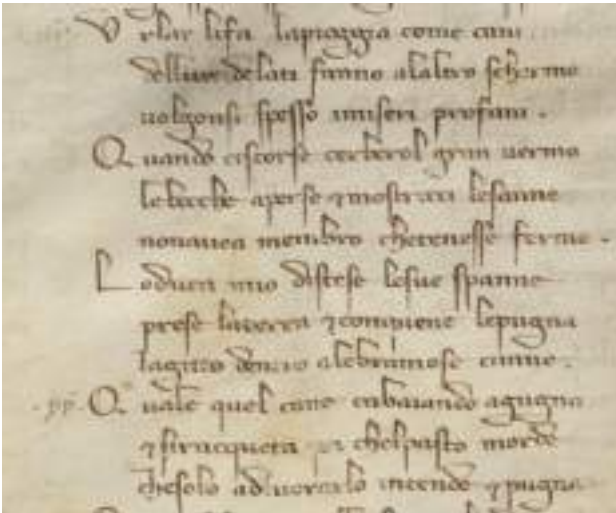 Urlar lifa lapioggia come cani
dellun delati fanno alaltro schermo
uolgonsi spesso imiseri profani.
Quando ciscorse cerberol gran uermo
lebocche aperse ⁊ mostrocci lesanne
nonauea membro chetenesse fermo.
Loduca mio distese lesue spanne
prese laterra ⁊ conpiene lepugna
lagitto dentro alebramose canne.
Quale quel cane cabaiando agugna
⁊ siracqueta chelpasto morde
chesolo aduorarlo intende ⁊ pugna